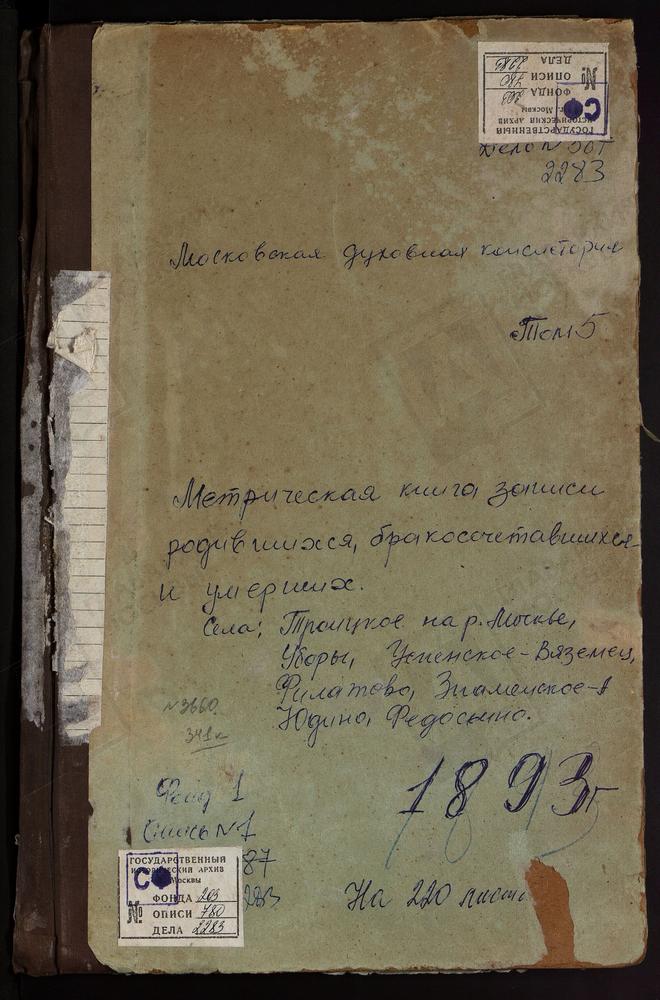 ГОСУДАРСТВЕННЫЙ
ИСТОРИЧЕСКИЙ АРХИВ
г. Москвы
ФОНДА 203
№ ОПИСИ 780
ДЕЛА 2283
Дело №
2283
Московская духовная консистория
Том 5
Метрическая книга записи
родившихся, бракосочетавшихся
и умерших.
Села: Троицкое на р. Москве,
Уборы, Успенское-Вяземец,
Филатово, Знаменское-
Юдино, Федосьино.
№3660
341к
1893г
Фонд 1
Опись №1
87
283
На 220 листа
ГОСУДАРСТВЕННЫЙ
ИСТОРИЧЕСКИЙ АРХИВ
г. Москвы
СФ
ФОНДА 203
№ ОПИСИ 780
ДЕЛА 2283